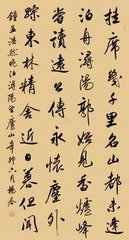 挂席幾千里名山都未逢
泊舟潯陽郭始見香爐峰
嘗讀遠公傳永懷塵外
踪東林精舍近日暮但聞
鐘 孟浩然晚泊潯陽望廬山 辛卯六月楊